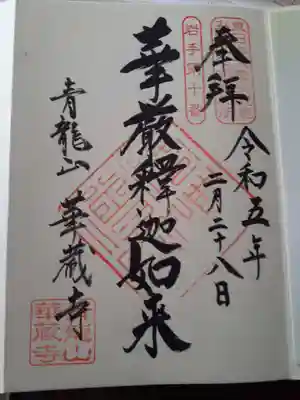 奉拜
令和五年
二月二十八日
華厳釋迦如来
青龍山 華蔵寺
岩手第十番
青龍山
華蔵寺